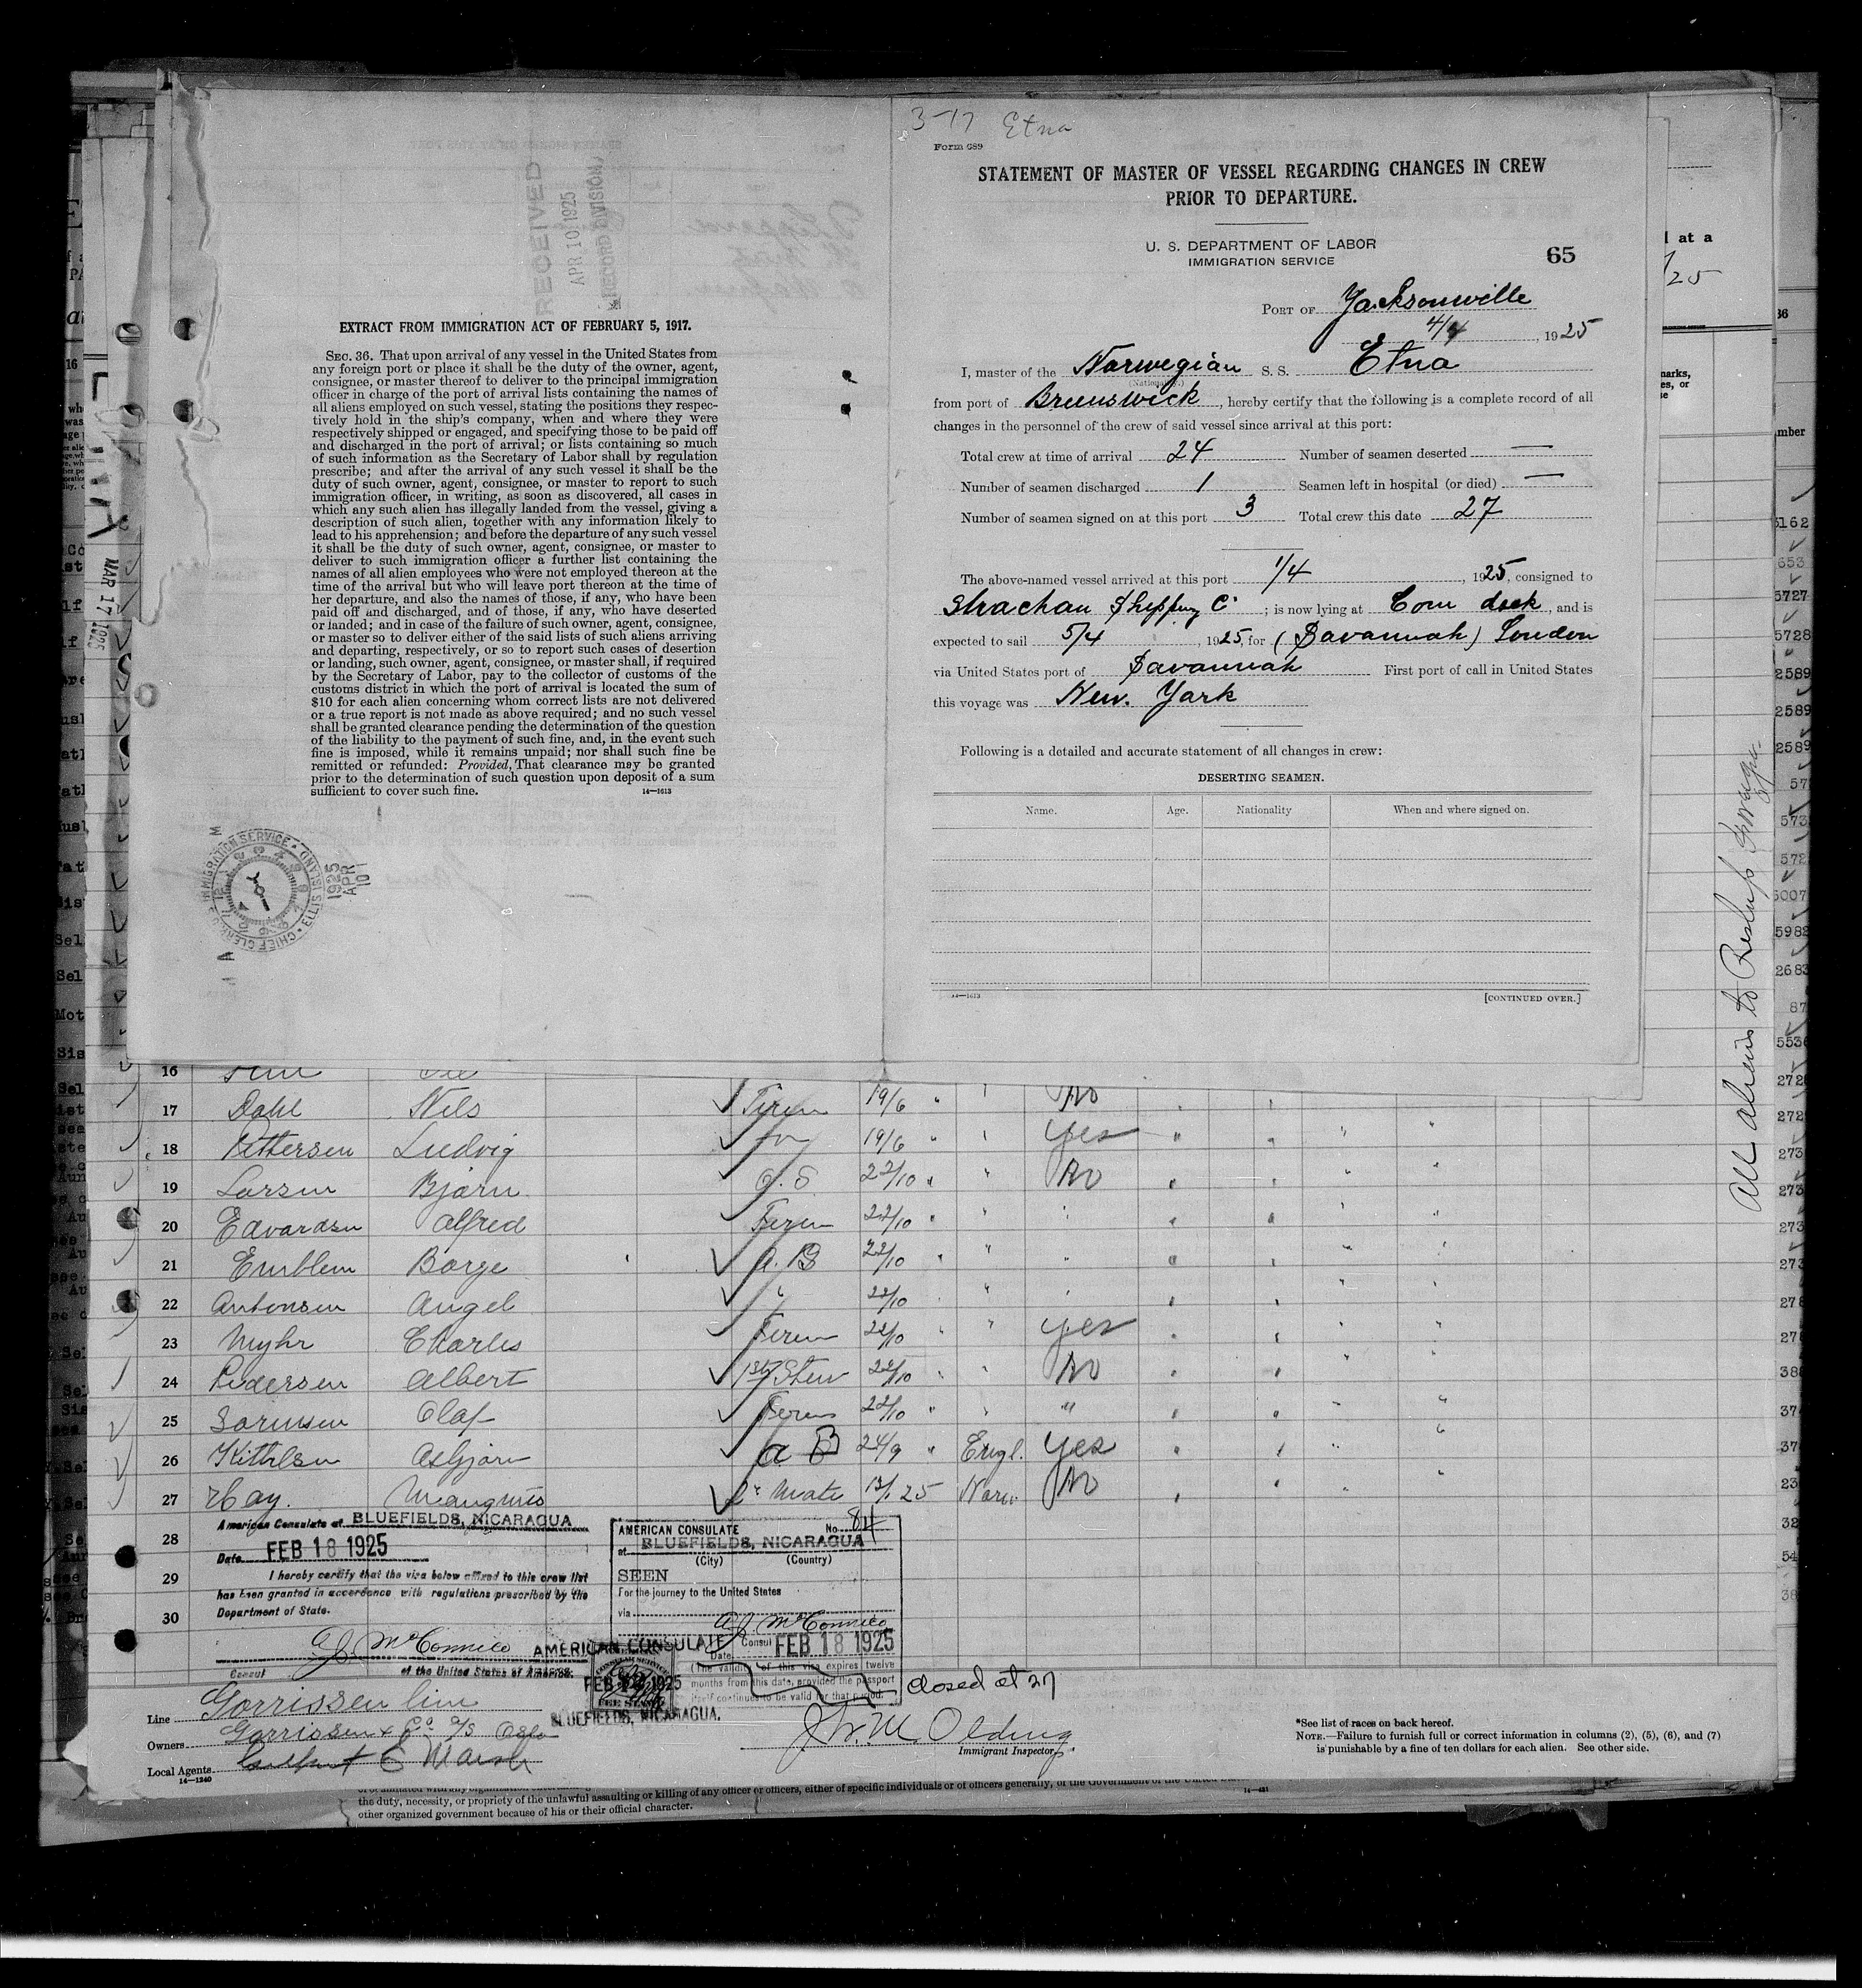 RECEIVED
APR 10 1925
RECORD DIVISION
EXTRACT FROM IMMIGRATION ACT OF FEBRUARY 5, 1917.
SEC. 36. That upon arrival of any vessel in the United States from
any foreign port or place it shall be the duty of the owner, agent,
consignee, or master thereof to deliver to the principal immigration
officer in charge of the port of arrival lists containing the names of
all aliens employed on such vessel, stating the positions they respec-
tively hold in the ship's company, when and where they were
respectively shipped or engaged, and specifying those to be paid off
and discharged in the port of arrival; or lists containing so much
of such information as the Secretary of Labor shall by regulation
prescribe; and after the arrival of any such vessel it shall be the
duty of such owner, agent, consignee, or master to report to such
immigration officer, in writing, as soon as discovered, all cases in
which any such alien has illegally landed from the vessel, giving a
description of such alien, together with any information likely to
lead to his apprehension; and before the departure of any such vessel
it shall be the duty of such owner, agent, consignee, or master to
deliver to such immigration officer a further list containing the
names of all alien employees who were not employed thereon at the
time of the arrival but who will leave port thereon at the time of
her departure, and also the names of those, if any, who have been
paid off and discharged, and of those, if any, who have deserted
or landed; and in case of the failure of such owner, agent, consignee,
or master so to deliver either of the said lists of such aliens arriving
and departing, respectively, or so to report such cases of desertion
or landing, such owner, agent, consignee, or master shall, if required
by the Secretary of Labor, pay to the collector of customs of the
customs district in which the port of arrival is located the sum of
$10 for each alien concerning whom correct lists are not delivered
or a true report is not made as above required; and no such vessel
shall be granted clearance pending the determination of the question
of the liability to the payment of such fine, and, in the event such
fine is imposed, while it remains unpaid; nor shall such fine be
remitted or refunded: Provided, That clearance may be granted
prior to the determination of such question upon deposit of a sum
sufficient to cover such fine. 14—1613
IMMIGRATION SERVICE
CHIEF CLERK
ELLIS ISLAND
1925
APR
10
3-17 Etna
Form 689
STATEMENT OF MASTER OF VESSEL REGARDING CHANGES IN CREW
PRIOR TO DEPARTURE.
U. S. DEPARTMENT OF LABOR
IMMIGRATION SERVICE
65
PORT OF Jacksonville
4/4, 1925
I, master of the Norwegian S. S. Etna
(Nationality.)
from port of Brunswick, hereby certify that the following is a complete record of all
changes in the personnel of the crew of said vessel since arrival at this port:
Total crew at time of arrival 24 Number of seamen deserted —
Number of seamen discharged 1 Seamen left in hospital (or died) —
Number of seamen signed on at this port 3 Total crew this date 27
The above-named vessel arrived at this port 1/4, 1925, consigned to
Strachan Shipping Co; is now lying at Com dock, and is
expected to sail 5/4, 1925, for (Savannah) London
via United States port of Savannah First port of call in United States
this voyage was New. York
Following is a detailed and accurate statement of all changes in crew:
DESERTING SEAMEN.
Name. Age. Nationality When and where signed on.
[CONTINUED OVER.]
MAR 17 1925
All aliens to Reship Foreign
16
17 Dahl Nils Firem 19/6 " " No
18 Pettersen Ludvig 19/6 " " Yes
19 Larsen Bjarn O.S. 22/10 " " No
20 Edvardsen Alfred Firem 22/10 " "
21 Emblem Borge A.B 22/10 " "
22 Antonsen Angel " 22/10 " "
23 Myhr Charles Firem 22/10 " " Yes
24 Pedersen Albert 1st Stew 22/10 " " No
25 Sorensen Olaf Firem 22/10 " " "
26 Kittilsen Asbjorn A B 24/9 " Engl. Yes
27 Hay. Mangnus 2r Mate 13/1 25 Norw. No
28
29
30
American Consulate at BLUEFIELDS, NICARAGUA
Date FEB 18 1925
I hereby certify that the visa below affixed to this crew list
has been granted in accordance with regulations prescribed by the
Department of State.
A.J. McConnico
Consul of the United States of America.
AMERICAN CONSULATE No. 84
at BLUEFIELDS, NICARAGUA
(City) (Country)
SEEN
For the journey to the United States
via
A.J. McConnico
Consul
Date FEB 18 1925
(The validity of this visa expires twelve
months from this date, provided the passport
itself continues to be valid for that period.
AMERICAN CONSULATE
FEB 18 1925
FEE STAMP
BLUEFIELDS, NICARAGUA.
closed at 27
Line Gorrissen line
Owners Gorrissen & Co a/s Oslo
Local Agents
14—1240
J. W. M. Olding
Immigrant Inspector.
*See list of races on back hereof.
NOTE.—Failure to furnish full or correct information in columns (2), (5), (6), and (7)
is punishable by a fine of ten dollars for each alien. See other side.
the duty, necessity, or propriety of the unlawful assaulting or killing of any officer or officers, either of specific individuals or of officers generally, of the Government of the United
other organized government because of his or their official character.